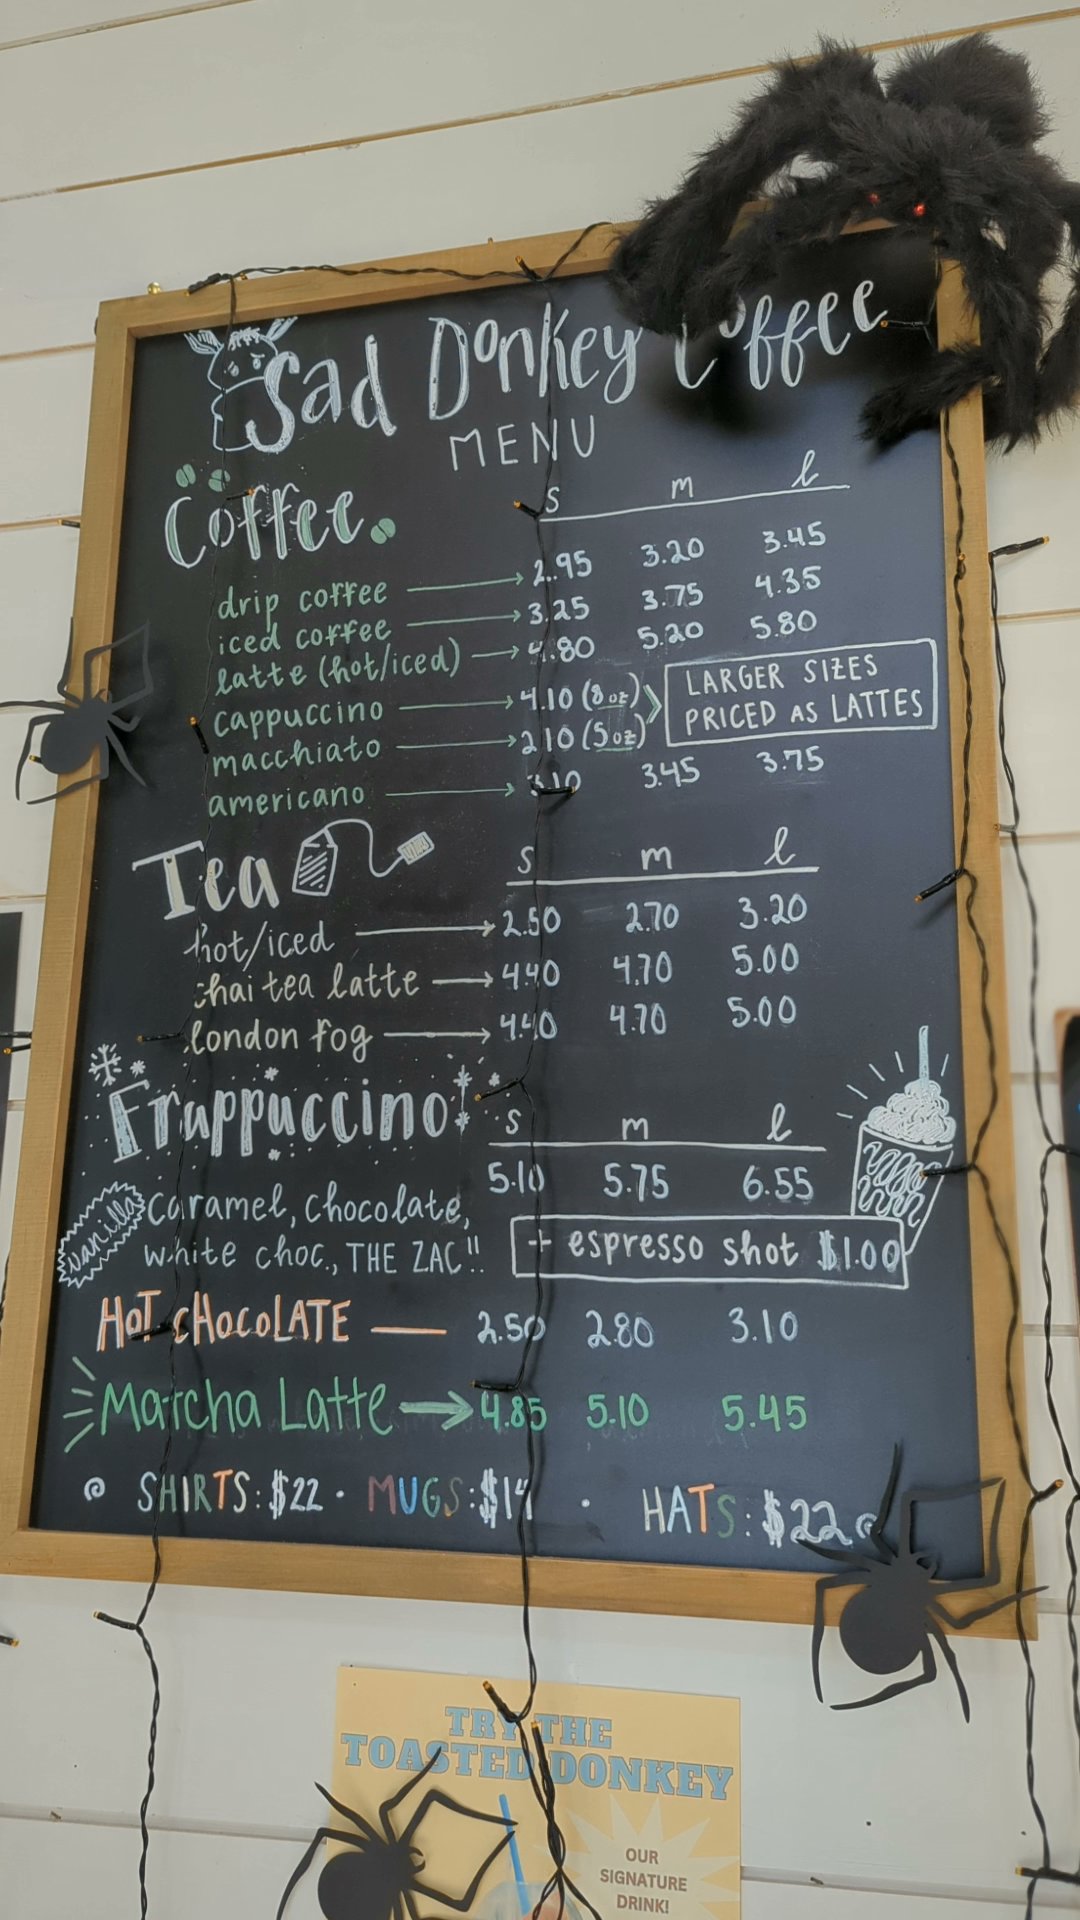 Sad Donkey Coffee
MENU
Coffee s m l
drip coffee 2.95 3.20 3.45
iced coffee 3.25 3.75 4.35
latte (hot/iced) 4.80 5.20 5.80
cappuccino 4.10 (8oz)
macchiato 2.10 (5oz)
LARGER SIZES
PRICED AS LATTES
americano 3.10 3.45 3.75
Tea s m l
hot/iced 2.50 2.70 3.20
chai tea latte 4.40 4.70 5.00
london fog 4.40 4.70 5.00
Frappuccino! s m l
5.10 5.75 6.55
vanilla caramel, chocolate,
white choc., THE ZAC!!
+ espresso shot $1.00
HOT CHOCOLATE 2.50 2.80 3.10
Matcha Latte 4.85 5.10 5.45
SHIRTS: $22 · MUGS: $14 · HATS: $22
TRY THE
TOASTED DONKEY
OUR
SIGNATURE
DRINK!